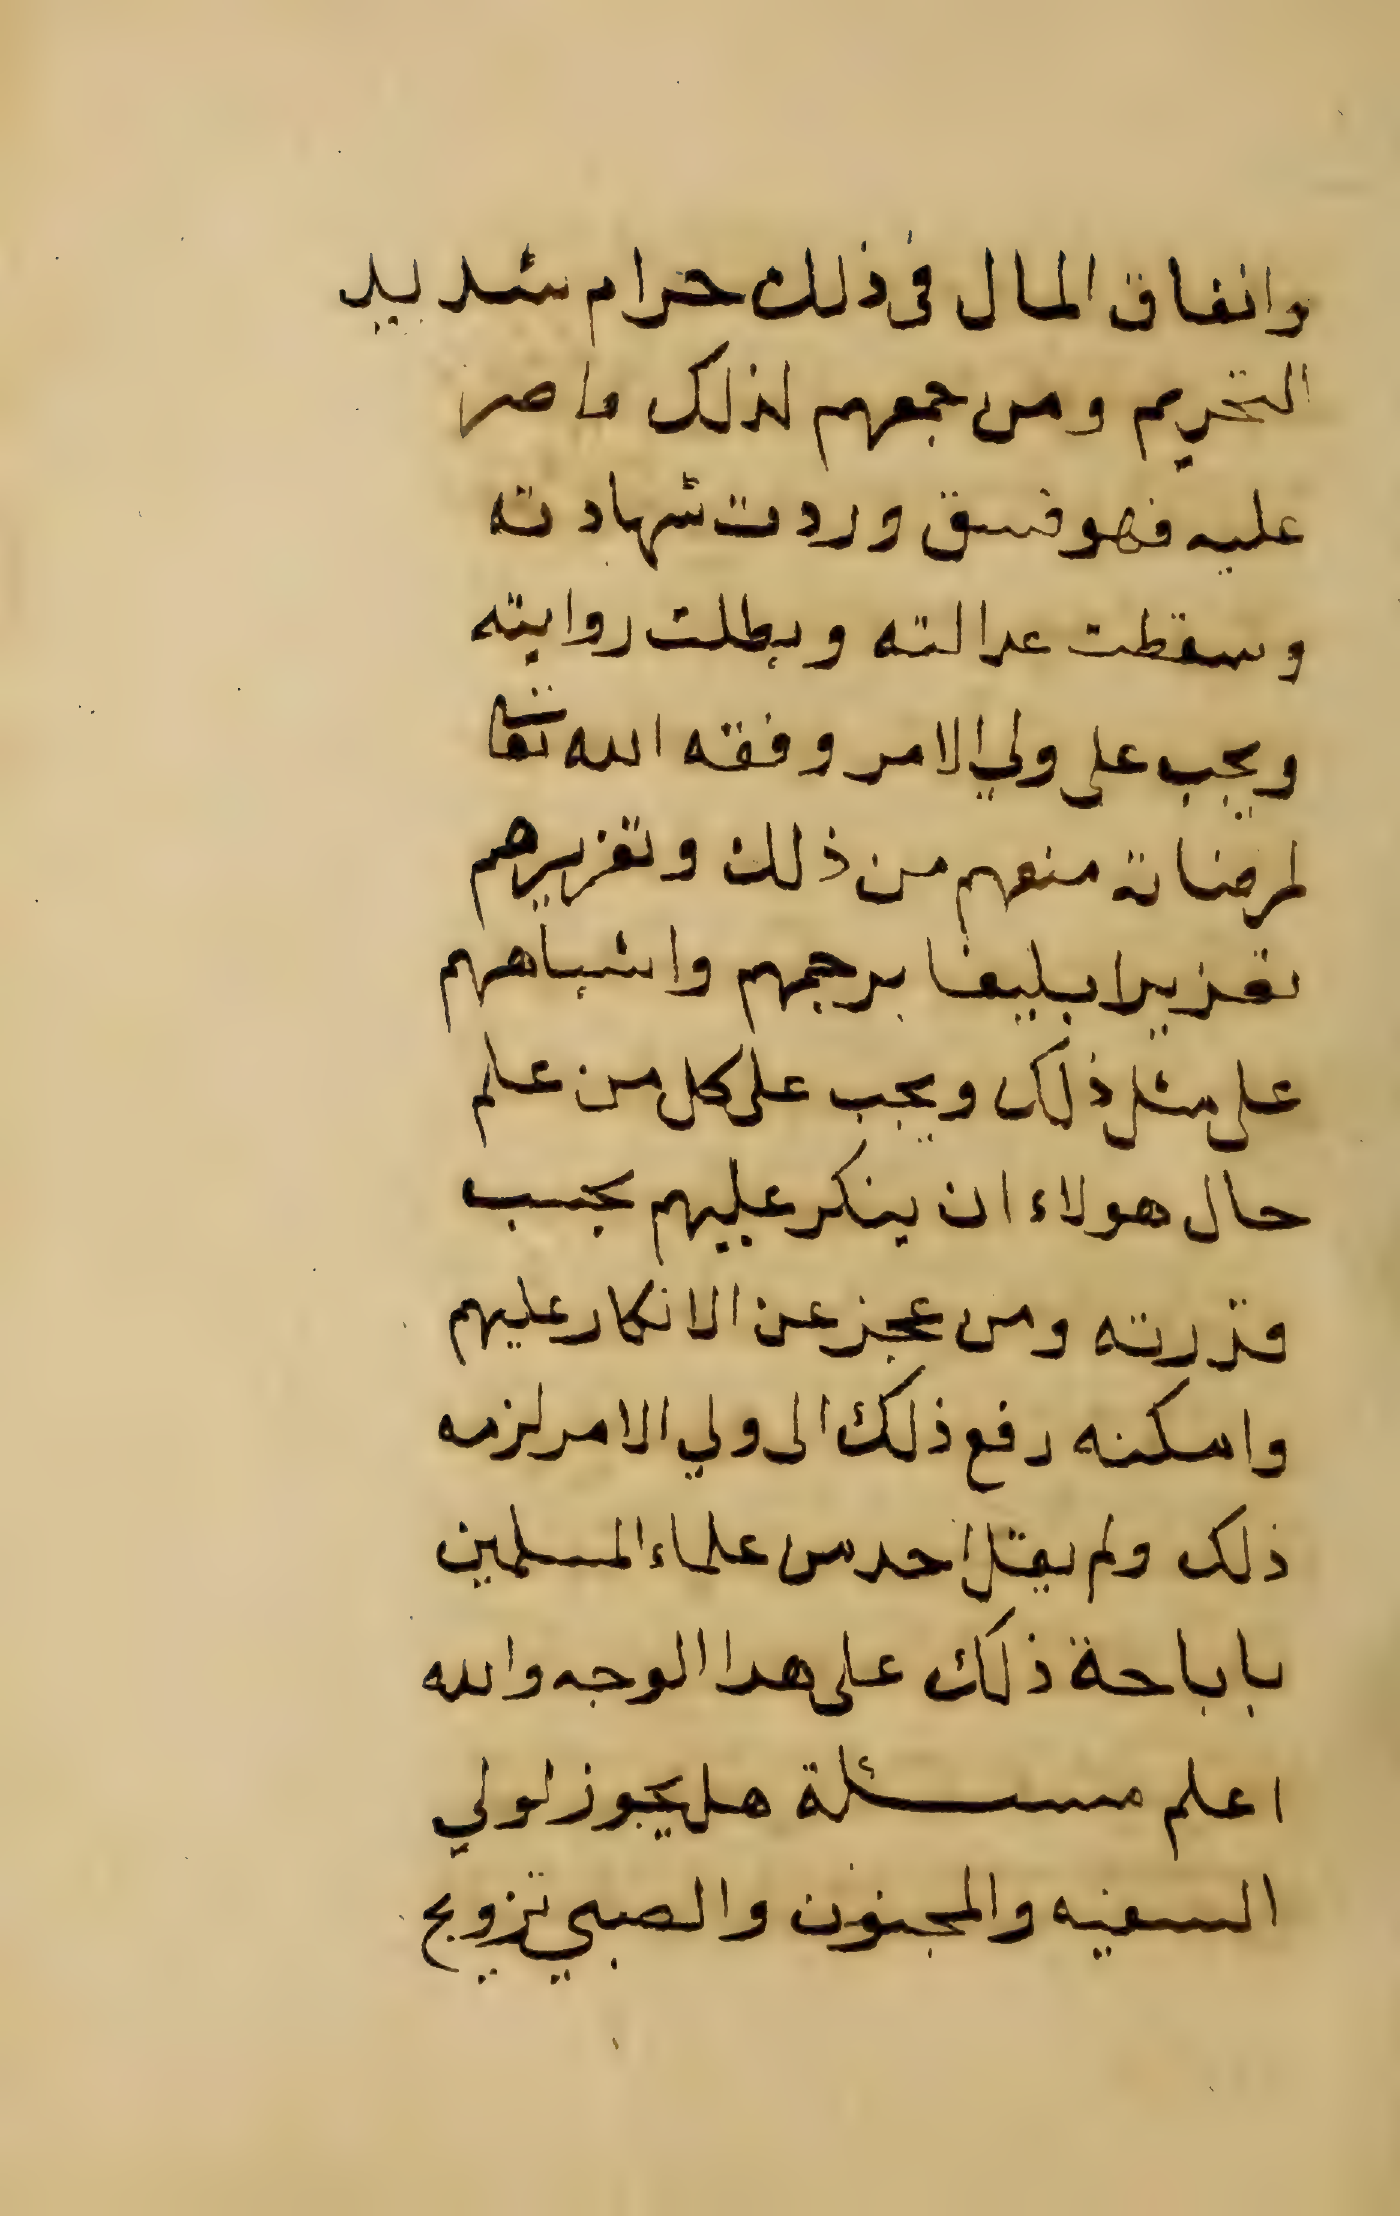 وانفاق المال فى ذلك حرام شديد
التحريم ومن جمعهم لذلك فاصر
عليه فهو فسق وردت شهادته
وسقطت عدالته وبطلت روايته
ويجب على ولي الامر وفقه الله تعا
لمرضاته منعهم من ذلك وتعزيرهم
تعزيرا بليغا يرجمهم واشباههم
على مثل ذلك ويجب على كل من علم
حال هولاء ان ينكر عليهم بحسب
قدرته ومن عجز عن الانكار عليهم
وامكنه رفع ذلك الى ولي الامر لزمه
ذلك ولم يقل احد من علماء المسلمين
باباحة ذلك على هدا الوجه والله
اعلم مسئلة هل يجوز لولي
السفيه والمجنون والصبي تزويج